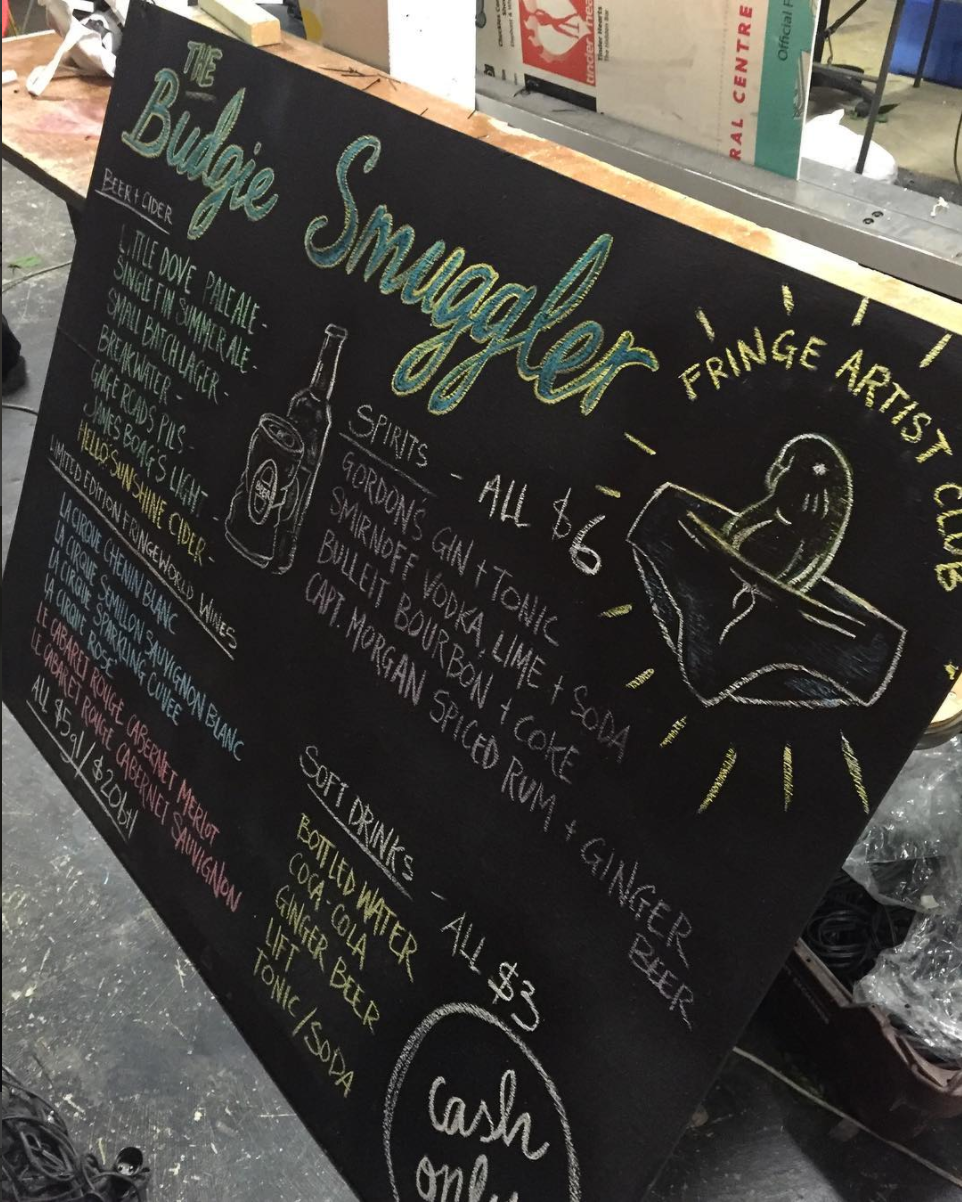 THE
Budgie Smuggler
BEER + CIDER
LITTLE DOVE PALE ALE -
SINGLE FIN SUMMER ALE -
SMALL BATCH LAGER -
BREAKWATER -
GAGE ROADS PILS -
JAMES BOAG'S LIGHT -
HELLO SUNSHINE CIDER -
LIMITED EDITION FRINGEWORLD WINES
LA CIRQUE CHENIN BLANC
LA CIRQUE SEMILLON SAUVIGNON BLANC
LA CIRQUE SPARKLING CUVEE
LA CIRQUE ROSE
LE CABARET ROUGE CABERNET MERLOT
LE CABARET ROUGE CABERNET SAUVIGNON
ALL $5gl / $20btl
BEER
SPIRITS - ALL $6
GORDON'S GIN + TONIC
SMIRNOFF VODKA, LIME + SODA
BULLEIT BOURBON + COKE
CAPT. MORGAN SPICED RUM + GINGER
BEER
SOFT DRINKS - ALL $3
BOTTLED WATER
COCA-COLA
GINGER BEER
LIFT
TONIC / SODA
cash
only
FRINGE ARTIST CLUB
RAL CENTRE
Official F